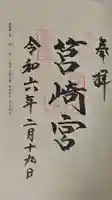 奉拝
筥崎宮
令和六年二月十九日